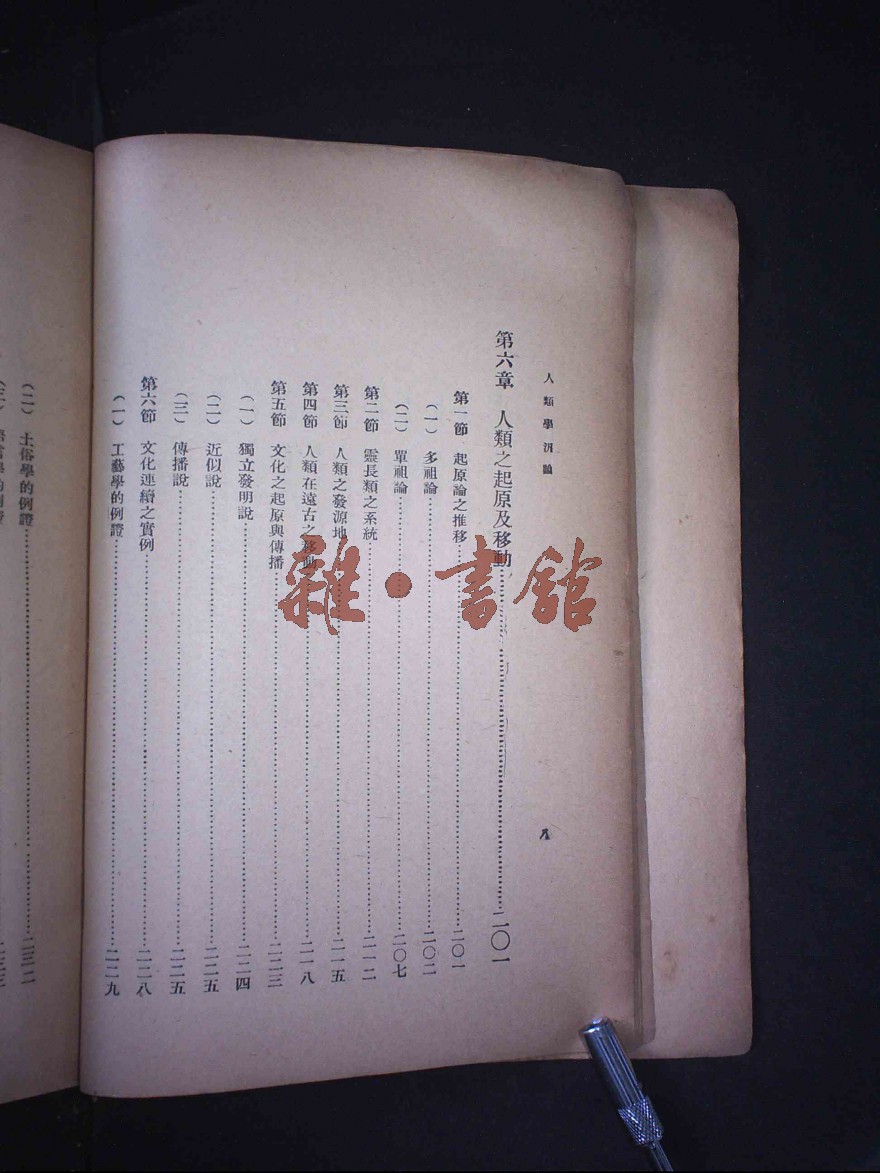 人類學汎論
八
第六章 人類之起原及移動……二〇一
第一節 起原論之推移……二〇一
（一） 多祖論……二〇二
（二） 單祖論……二〇七
第二節 靈長類之系統……二一二
第三節 人類之發源地……二一五
第四節 人類在遠古之移動……二一八
第五節 文化之起原與傳播……二二三
（一） 獨立發明說……二二四
（二） 近似說……二二五
（三） 傳播說……二二五
第六節 文化連續之實例……二二八
（一） 工藝學的例證……二二九
（二） 土俗學的例證……二三二
雜·書館